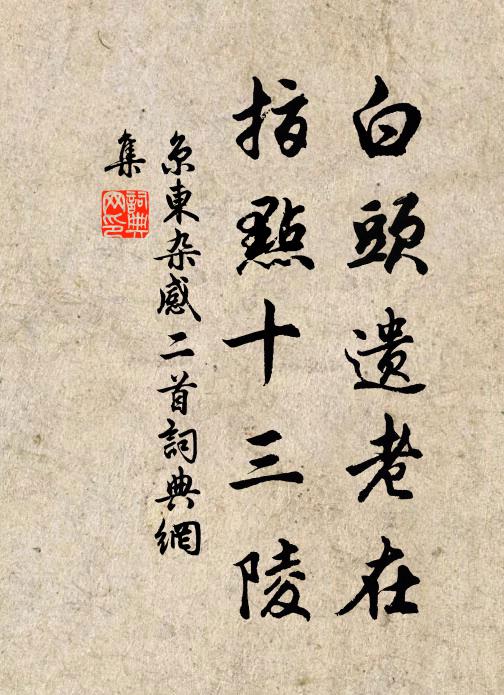 白頭遺老在
指點十三陵
京東杂感二首詞典網
集
詞典
网印